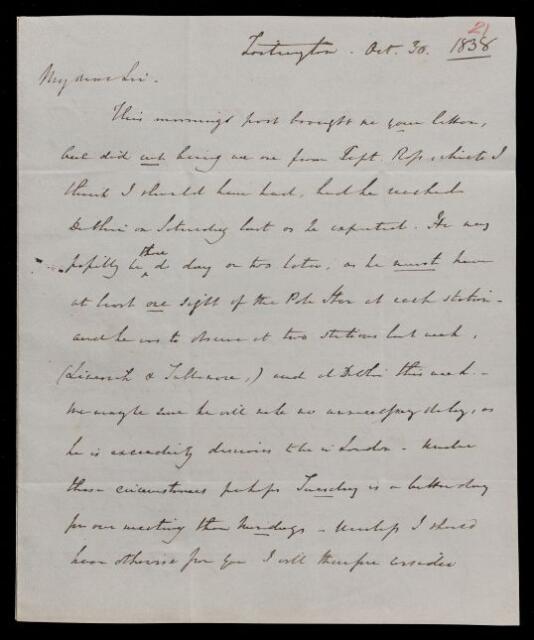 21
Tortington . Oct. 30. 1838
My dear Sir.
This morning's post brought me your letter,
but did not bring me one from Capt. Ross, which I
think I should have had, had he reached
Dublin on Saturday last as he expected. He may
possibly be there
a day or two later, as he must have
at least one sight of the Pole Star at each station -
and he was to observe at two stations last week,
(Limerick & Tullamore,) and at Dublin this week. -
We may be sure he will make no unnecessary delay, as
he is exceedingly desirous to be in London - Under
these circumstances perhaps Tuesday is a better day
for our meeting than Monday - Unless I should
hear otherwise from you I will therefore consider